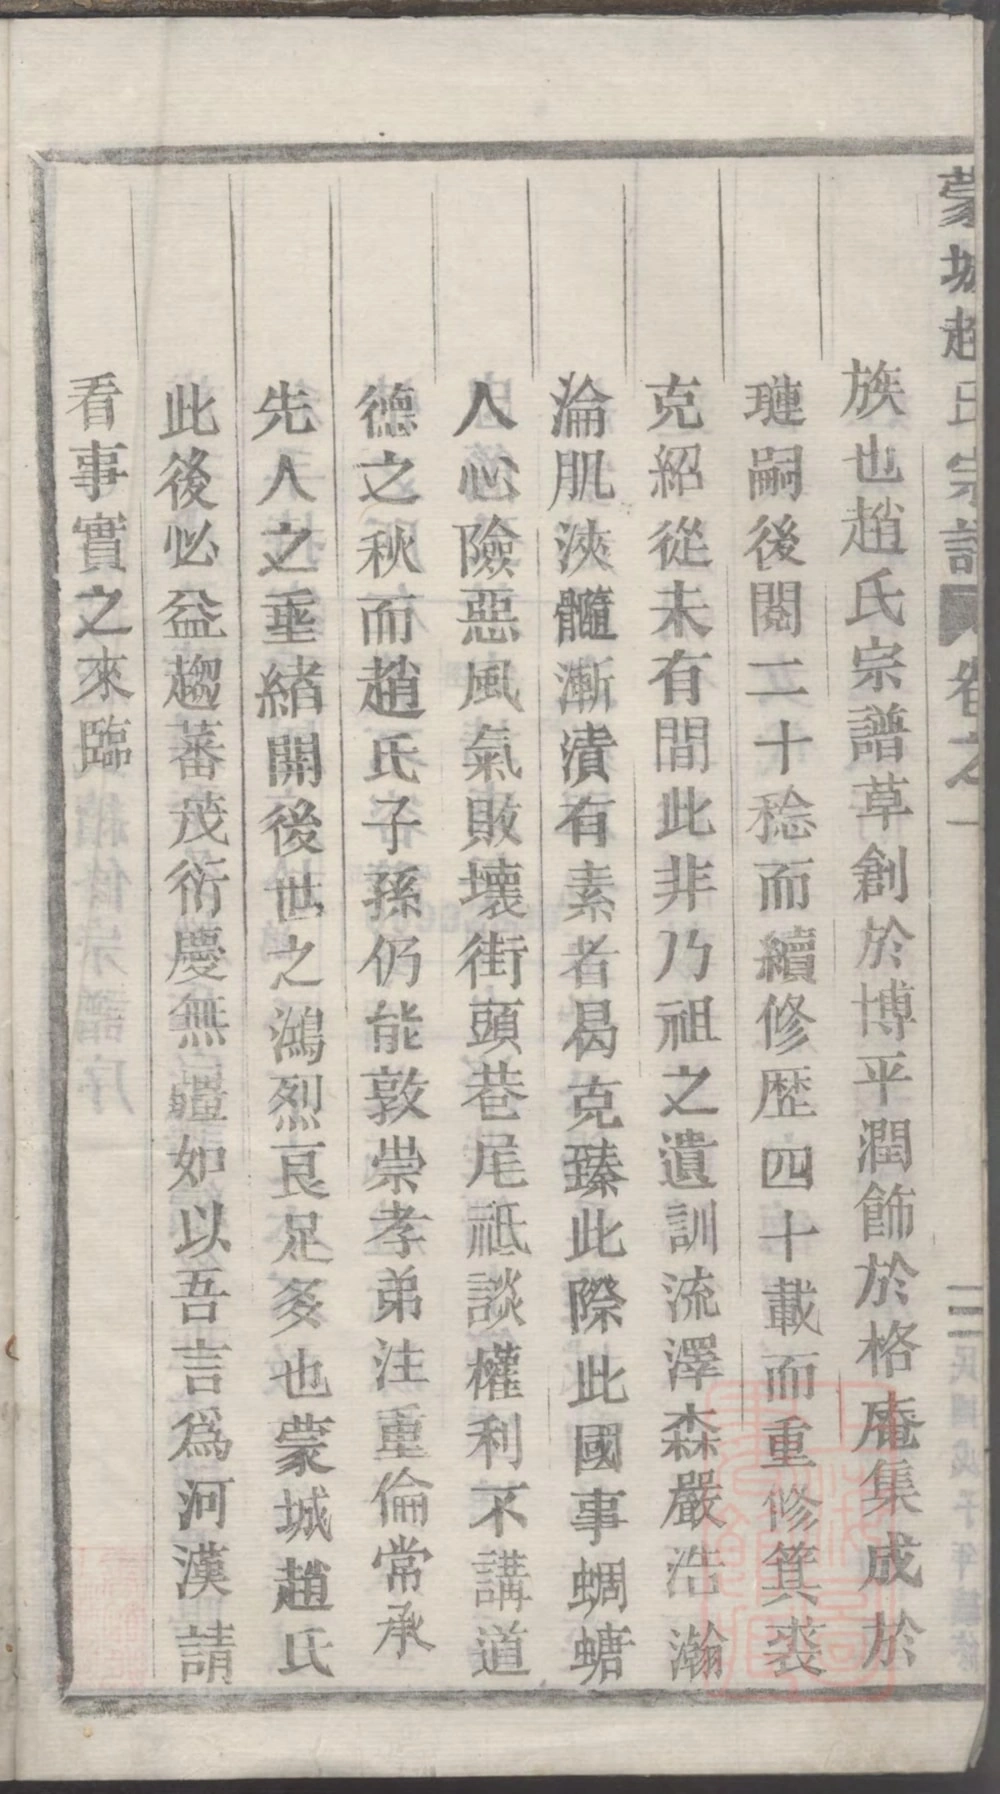 蒙城趙氏宗譜 卷之一 二 民國戊子年續修
族也趙氏宗譜草創於博平潤飾於格庵集成於
璉嗣後閱二十稔而續修歷四十載而重修箕裘
克紹從未有間此非乃祖之遺訓流澤森嚴浩瀚
淪肌浹髓漸漬有素者曷克臻此際此國事蜩螗
人心險惡風氣敗壞街頭巷尾祇談權利不講道
德之秋而趙氏子孫仍能敦崇孝弟注重倫常承
先人之垂緒開後世之鴻烈良足多也蒙城趙氏
此後必益趨蕃茂衍慶無疆如以吾言爲河漢請
看事實之來臨